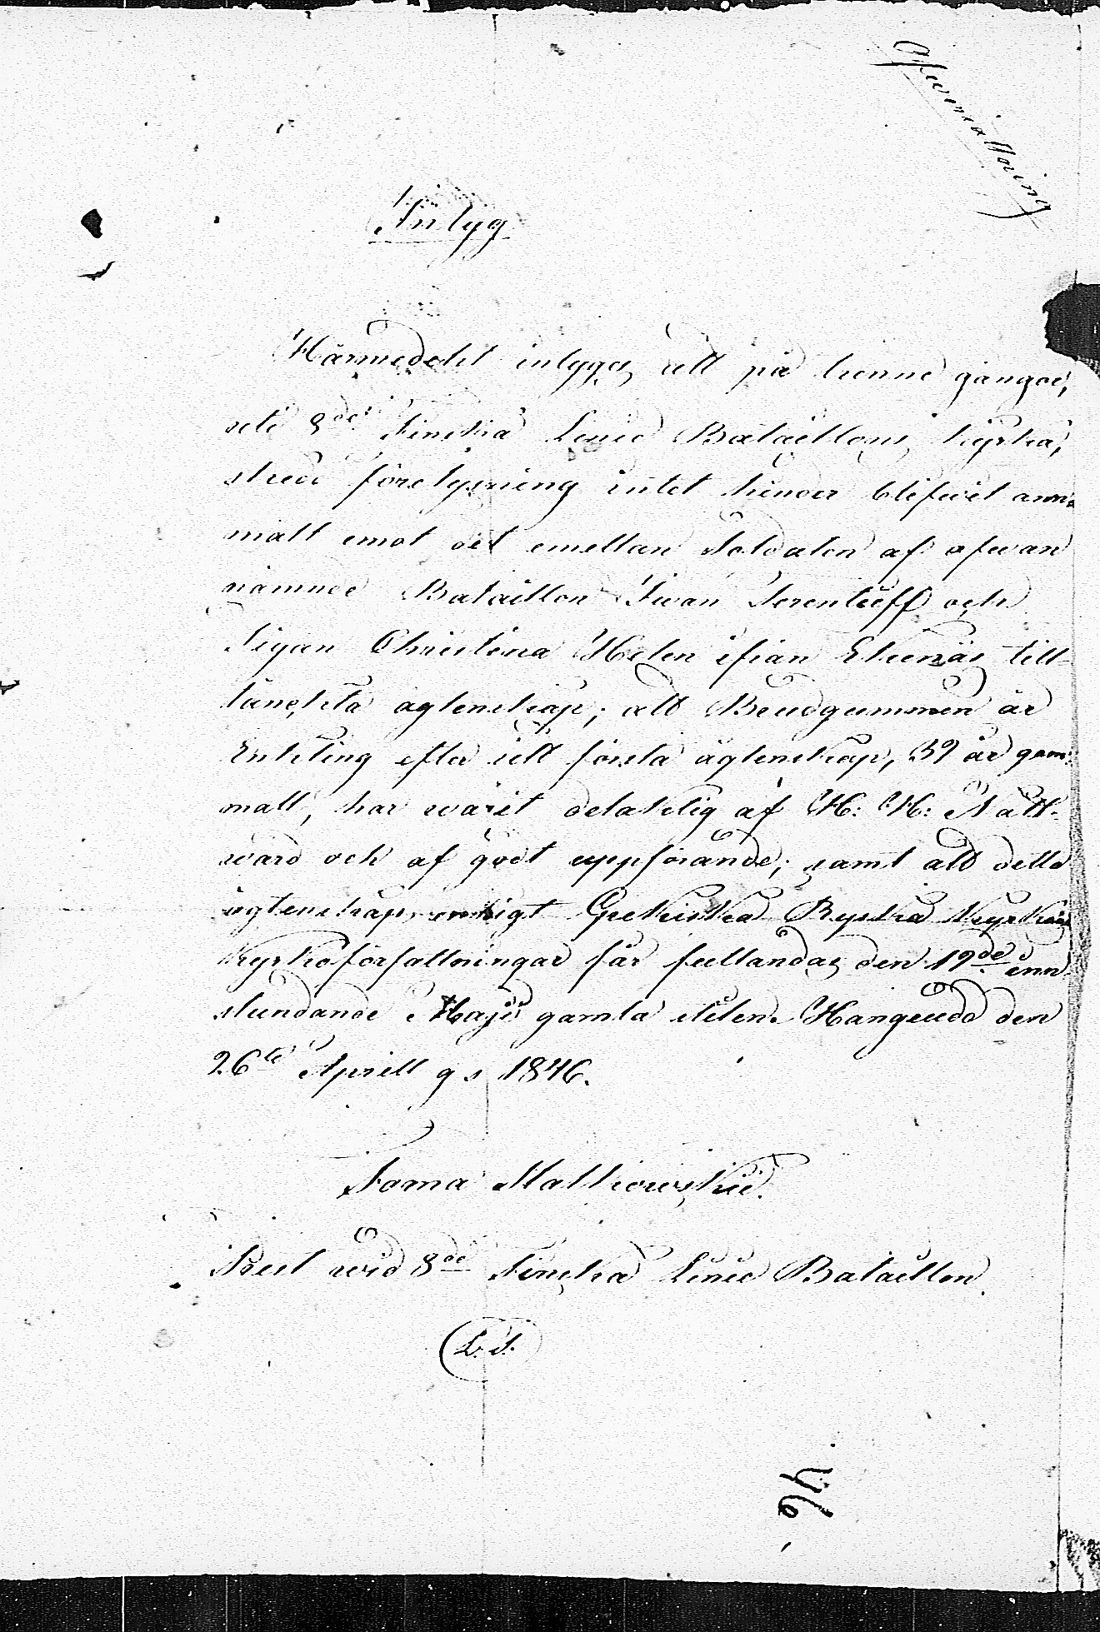 Öfversättning
Intyg
Härmedelst intygas att på trenne gångor,
uti 8de Finska Linie Bataillons kyrka,
skedd förelysning intet hinder blifvit anm-
mält emot det emellan Soldaten af ofvan
nämnde Bataillon Ivan Terentieff och
Pigan Christina Helen ifrån Ekenäs till-
tänckta ägtenskap; att Brudgummen är
Enkling efter sitt första ägtenskap, 39 år gam-
mall, har warit delaktig af H: H: Natt-
ward och af godt uppförande; samt att detta
ägtenskap enligt Grekiska Ryska Kyrkans
Kyrkoförfattningar får fullandas den 19de inn-
stundande Maji gamla stilen. Hangeudd den
26te Aprill g. s 1846.
Foma Malkowskii.
Prest wid 8de Finska Linie Bataillon.
(L.S.)
96.